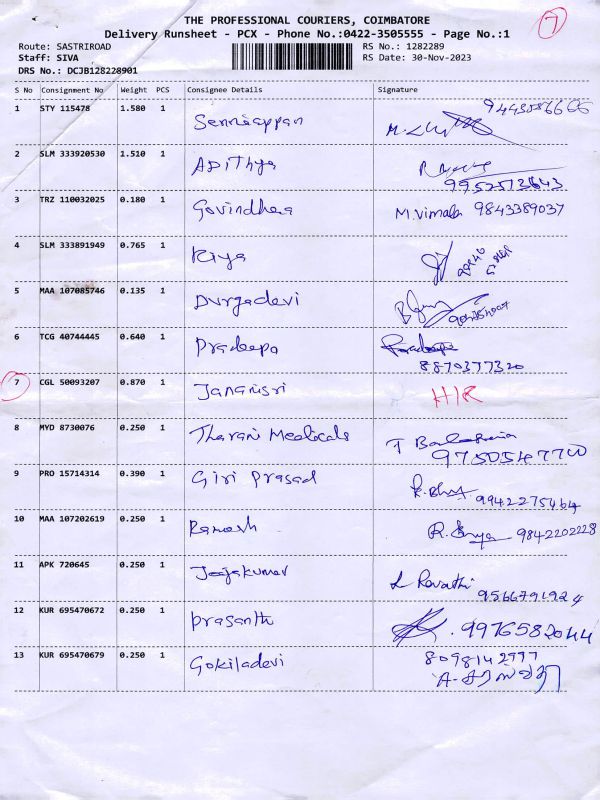 THE PROFESSIONAL COURIERS, COIMBATORE
7
Delivery Runsheet - PCX - Phone No.:0422-3505555 - Page No.:1
Route: SASTRIROAD
RS No.: 1282289
Staff: SIVA
RS Date: 30-Nov-2023
DRS No.: DCJB128228901
S No Consignment No Weight PCS Consignee Details Signature
1 STY 115478 1.580 1 Senniappan
2 SLM 333920530 1.510 1 ADIThya
9952573643
3 TRZ 110032025 0.180 1 Govindhraa M.Vimala 9843389037
4 SLM 333891949 0.765 1 Riya
5 MAA 107085746 0.135 1 Durgadevi
6 TCG 40744445 0.640 1 Pradeepa Pradeepa
8870377320
7 CGL 50093207 0.870 1 Jananisri H/R
8 MYD 8730076 0.250 1 Tharani Medicals
9 PRO 15714314 0.390 1 Giri Prasad
9942275464
10 MAA 107202619 0.250 1 Ramesh 9842202228
11 APK 720645 0.250 1 Jeejakumar L Revathi
9566791924
12 KUR 695470672 0.250 1 Prasanth 9976582044
13 KUR 695470679 0.250 1 Gokiladevi 8098142997